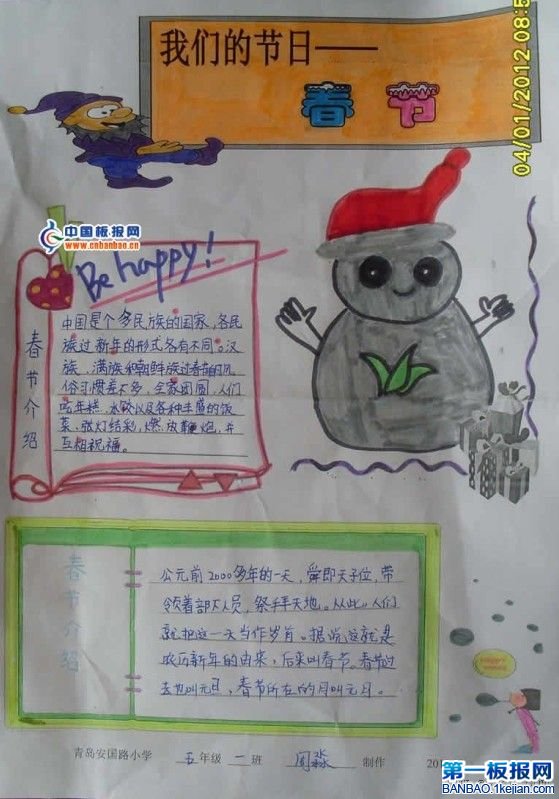 我们的节日——
春节
04/01/2012 08:5
中国板报网
www.cnbanbao.cn
Be happy!
春节介绍
中国是个多民族的国家,各民
族过新年的形式各有不同。汉
族、满族和朝鲜族过春节的风
俗习惯差不多,全家团圆,人们
吃年糕、水饺以及各种丰盛的饭
菜、张灯结彩,燃放鞭炮,并
互相祝福。
春节介绍
公元前2000多年的一天,舜即天子位,带
领着部下人员,祭拜天地。从此,人们
就把这一天当作岁首。据说这就是
农历新年的由来,后来叫春节。春节过
去也叫元旦,春节所在的月叫元月。
青岛安国路小学 五年级 二班 闫淼 制作 20
第一板报网
BANBAO.1kejian.com